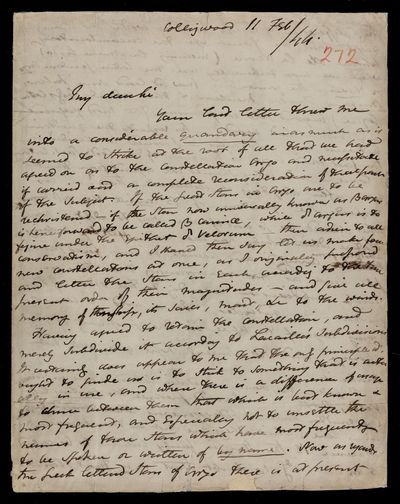 Collingwood 11 Feb /44.
272
My dear Sir
Your last letter threw me
into a considerable quandary inasmuch as it
seemed to strike at the root of all that we had
agreed on as to the constellation Argo and necessitate
if carried out a complete reconsideration of
of the subject. If the great stars in Argo are to be
rechristened – if the Star now universally known as
is henceforward to be called β Carinæ, while δ Argus is to
figure under the of δ Velorum – then adieu to all
conservatism, and I then say let us make four
new constellations at once, as I originally proposed
and letter the Stars in Each according to the
present order of their magnitudes – and give all
memory of Argo, its Sails, mast, &c to the winds.
Having agreed to retain the constellation, and
merely Subdivide it according to Lacaille's Subdivisions
it certainly does appear to me that the only principle that
ought to guide us is to stick to something that is
in use, and where there is a difference of usage
to choose between them that which is best known &
most frequent, and Especially not to unsettle the
names of those Stars which have most frequently
to be spoken or written of by name. Now as regards
the Greek lettered Stars of Argo there is at present